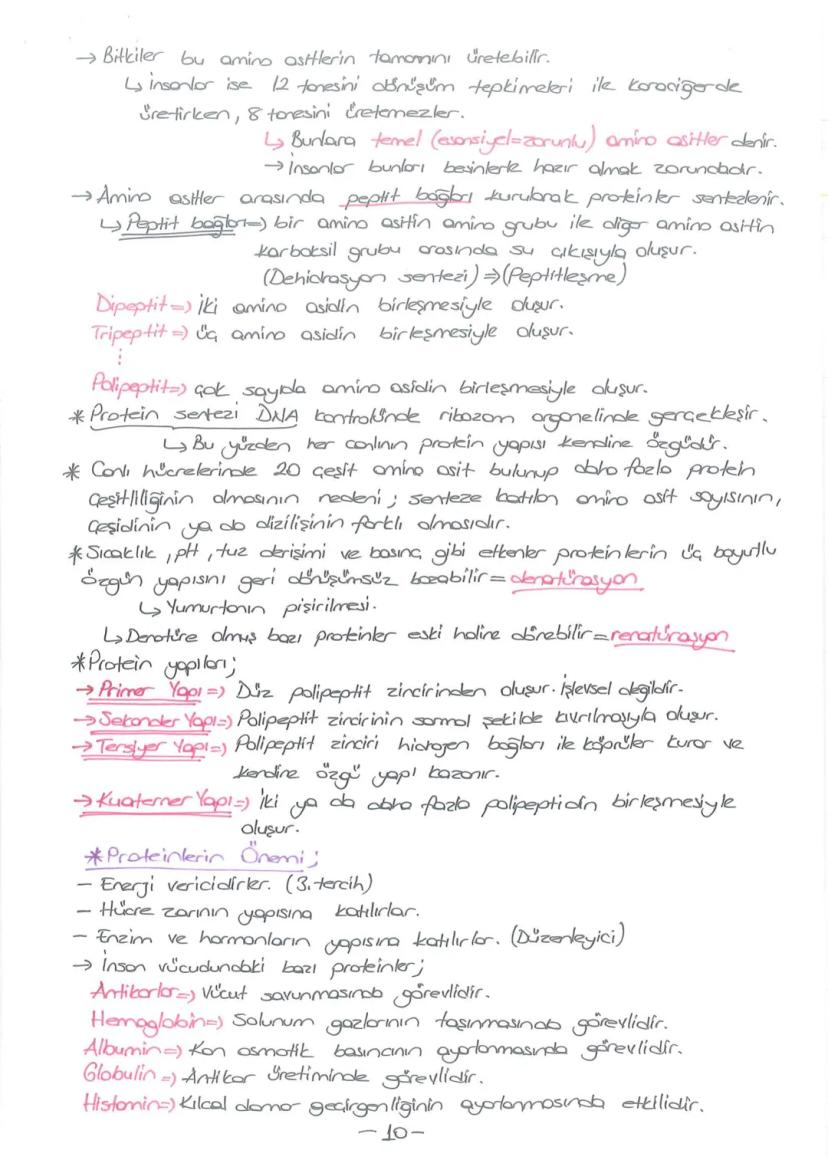 → Bitkiler bu amino asitlerin tamamını üretebilir.
↳ insanlar ise 12 tanesini dönüşüm tepkimeleri ile karaciğerde
üretirken, 8 tanesini üretemezler.
↳ Bunlara temel (esansiyel=zorunlu) amino asitler denir.
→ İnsanlar bunları besinlerle hazır almak zorundadır.
→ Amino asitler arasında peptit bağları kurularak proteinler sentezlenir.
↳ Peptit bağları=) bir amino asitin amino grubu ile diğer amino asitin
karboksil grubu arasında su çıkışıyla oluşur.
(Dehidrasyon sentezi) ⇒ (Peptitleşme)
Dipeptit=) İki amino asidin birleşmesiyle oluşur.
Tripeptit=) Üç amino asidin birleşmesiyle oluşur.
⋮
Polipeptit=) Çok sayıda amino asidin birleşmesiyle oluşur.
* Protein sentezi DNA kontrolünde ribozom organelinde gerçekleşir.
↳ Bu yüzden her canlının protein yapısı kendine özgüdür.
* Canlı hücrelerinde 20 çeşit amino asit bulunup daha fazla protein
çeşitliliğinin olmasının nedeni; senteze katılan amino asit sayısının,
çeşidinin ya da dizilişinin farklı olmasıdır.
* Sıcaklık, pH, tuz derişimi ve basınç gibi etkenler proteinlerin üç boyutlu
özgün yapısını geri dönüşümsüz bozabilir = denatürasyon
↳ Yumurtanın pişirilmesi.
↳ Denatüre olmuş bazı proteinler eski haline dönebilir = renatürasyon
* Protein yapıları;
→ Primer Yapı=) Düz polipeptit zincirinden oluşur. İşlevsel değildir.
→ Sekonder Yapı=) Polipeptit zincirinin sarmal şekilde kıvrılmasıyla oluşur.
→ Tersiyer Yapı=) Polipeptit zinciri hidrojen bağları ile köprüler kurar ve
kendine özgü yapı kazanır.
→ Kuaterner Yapı=) İki ya da daha fazla polipeptidin birleşmesiyle
oluşur.
* Proteinlerin Önemi;
- Enerji vericidirler. (3. tercih)
- Hücre zarının yapısına katılırlar.
- Enzim ve hormonların yapısına katılırlar. (Düzenleyici)
→ İnsan vücudundaki bazı proteinler;
Antikorlar=) Vücut savunmasında görevlidir.
Hemoglobin=) Solunum gazlarının taşınmasında görevlidir.
Albumin=) Kan osmotik basıncının ayarlanmasında görevlidir.
Globulin=) Antikor üretiminde görevlidir.
Histamin=) Kılcal damar geçirgenliğinin ayarlanmasında etkilidir.
- 10 -